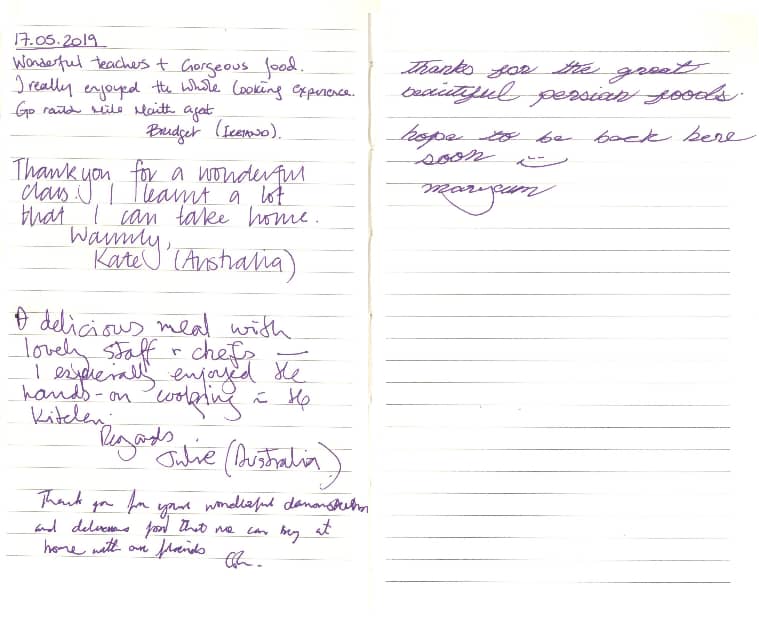 17.05.2019
Wonderful teachers + Gorgeous food.
I really enjoyed the whole cooking experience.
Go raibh míle maith agat
Bridget (IRELAND).
Thank you for a wonderful
class! I learnt a lot
that I can take home.
Warmly,
Kate (Australia)
A delicious meal with
lovely staff + chefs —
I especially enjoyed the
hands-on cooking in the
kitchen.
Regards.
Julie (Australia)
Thank you for your wonderful demonstration
and delicious food that we can try at
home with our friends
thanks for the great
beautiful persian foods.
hope to be back here
soon :)
maryam